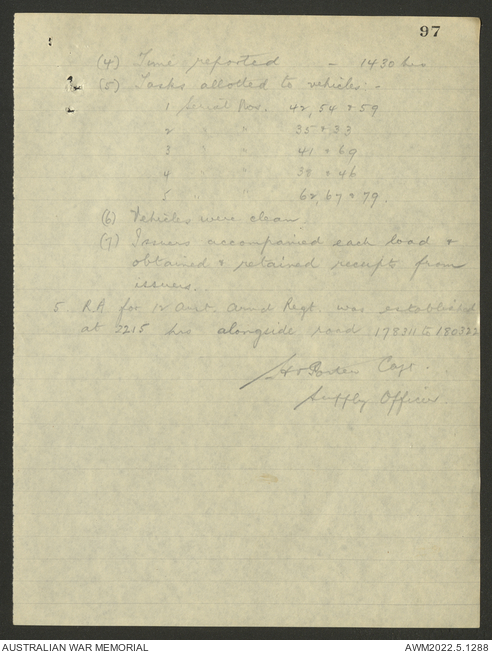 97
(4) Time reported - 1430 hrs
(5) Tasks allotted to vehicles -
1 Serial Nos. 42, 54 & 59
2 " " 35 & 33
3 " " 41 & 69
4 " " 38 & 46
5 " " 62, 67 & 79.
(6) Vehicles were clean.
(7) Issuers accompanied each load &
obtained & retained receipts from
issuers.
5. R.A. for 12 Aust. Armd Regt. was established
at 2215 hrs alongside road 178311 to 180322
Capt.
Supply Officer
AUSTRALIAN WAR MEMORIAL
AWM2022.5.1288